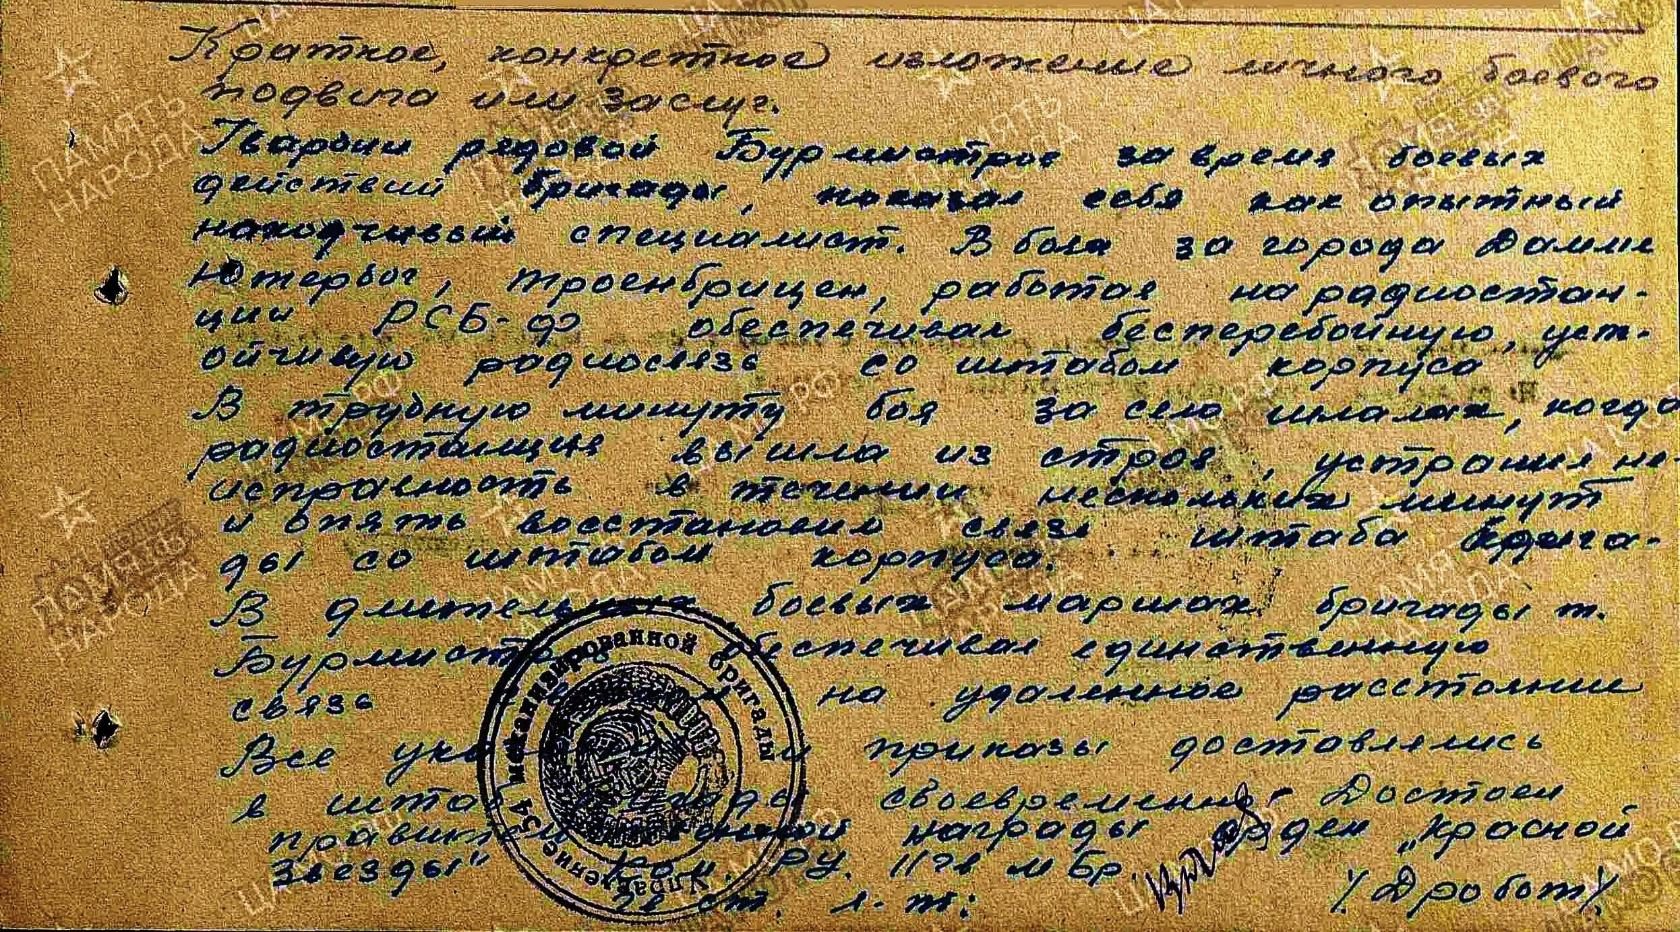 Краткое, конкретное изложение личного боевого
подвига или заслуг.
Гвардии рядовой Бурмистров за время боевых
действий бригады, показал себя как опытный
находчивый специалист. В боях за города Дамме
Ютербог, Троенбрицен, работая на радиостан-
ции РСБ-Ф обеспечивал бесперебойную, уст-
ойчивую радиосвязь со штабом корпуса
В трудную минуту боя за село, когда
радиостанция вышла из строя, устранил не-
исправность в течении нескольких минут
и опять восстановил связь штаба брига-
ды со штабом корпуса.
В длительных боевых маршах бригады т.
Бурмистров обеспечивал единственную
связь на удаленное расстояние
Все приказы доставлялись
в штаб своевременно. Достоин
награды орден „Красной
Звезды" Ком. РУ. 11 гв МБр.
гв ст. л-т: /Дробот/
Управление 54 механизированной бригады
ПАМЯТЬ НАРОДА
ЦАМО.РФ